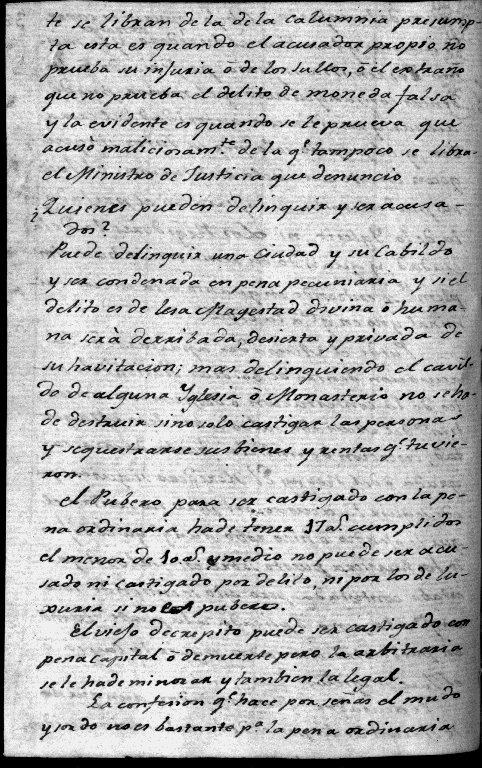 te se libran de la de la calumnia presump-
ta esta es quando el acusador propio no
prueba su injuria ó de los sullos, ó el extraño
que no prueba el delito de moneda falsa
y la evidente es quando se le prueva que
acusò maliciosam.te de la q.e tampoco se libra
el Ministro de Justicia que denuncio
¿Quienes pueden delinquir y ser acusa-
dos?
Puede delinquir una Ciudad y su Cabildo
y ser condenada en pena pecuniaria y si el
delito es de lesa Magestad divina ó huma-
na serà derribada, desierta y privada de
su havitacion; mas delinquiendo el cavil-
do de alguna Yglesia ó Monasterio no se ha
de destruir sino solo castigar las personas
y sequestrarse sus bienes y rentas q.e tuvie-
ron.
El Pubero para ser castigado con la pe-
na ordinaria ha de tener 17 a.s cumplidos
el menor de 10 a.s y medio no puede ser acu-
sado ni castigado por delito, ni por los de lu-
xuria si no es pubero.
El viejo decrepito puede ser castigado con
pena capital ó de muerte pero la arbitraria
se le ha de minorar y tambien la legal.
La confesion q.e hace por señas el mudo
y sordo no es bastante p.a la pena ordinaria